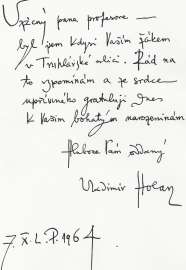 Vzácný pane profesore —
byl jsem kdysi Vaším žákem
v Truhlářské ulici. Rád na
to vzpomínám a ze srdce
upřímného gratuluji dnes
k Vašim bohatým narozeninám
Hluboce Vám oddaný
Vladimír Holan
7. X. L. P. 1964